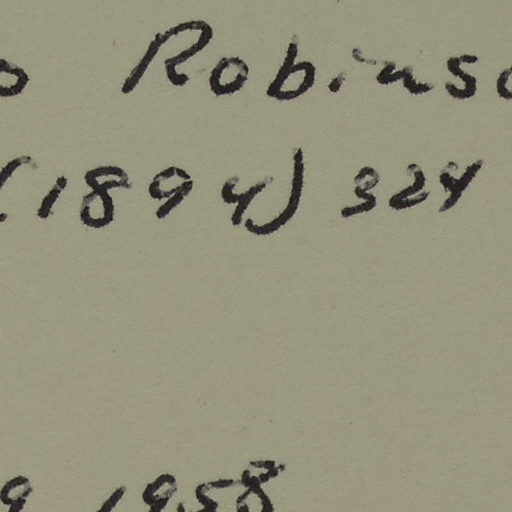 o Robinso
(1894) 324
9 1958